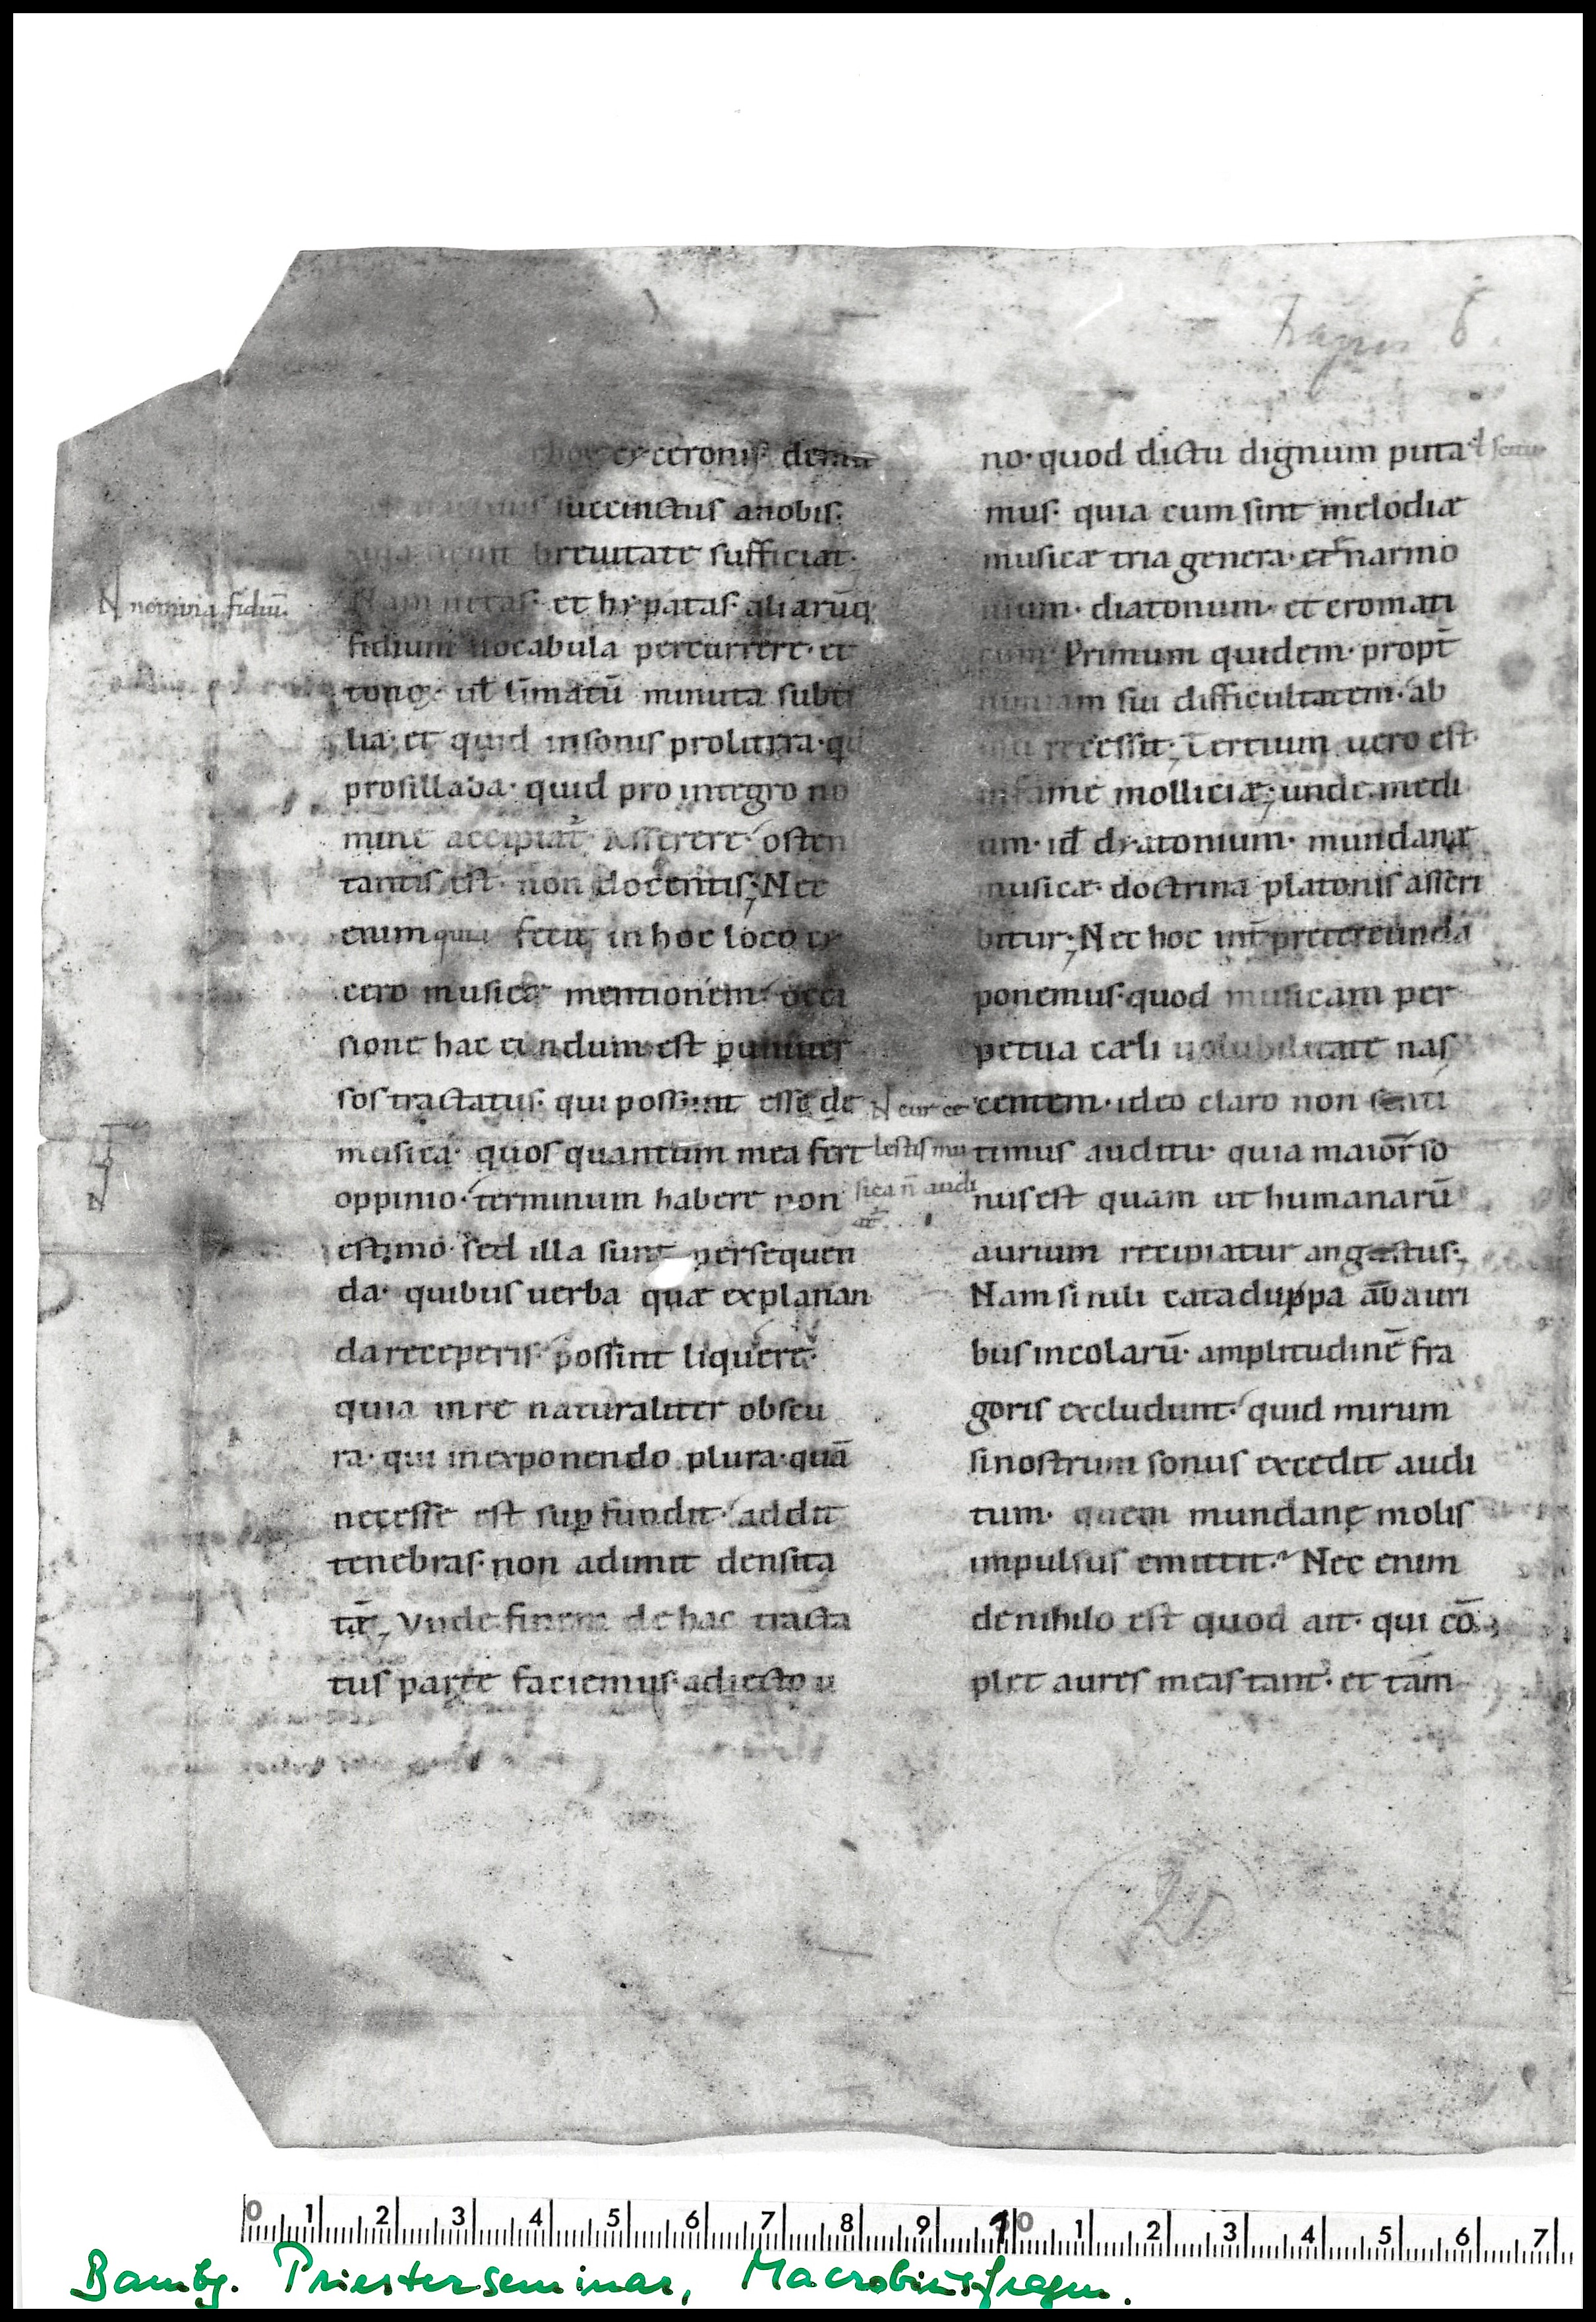 Fragm. 6.
ciceronis
succinctus a nobis.
breuitate sufficiat·
Nam netas· et hypatas· aliarūq;
N nomina fidiū.
fidium uocabula percurrere· et
tonoꝝ· ul limatū minuta subti
lia· et quid in sonis pro littera· qd
pro sillaba· quid pro integro no
mine accipiat̄ Asserere· osten
tantis est· non docentis; Nec
enim quia fecit in hoc loco cy
cero musicę mentionem· occa
sione hac eundum est ꝑ uniuer
sos tractatus· qui possunt esse de
musica· quos quantum mea fert
oppinio· terminum habere non
estimo· sed illa sunt persequen
da· quibus uerba quæ explanan
da receperis· possint liquere·
quia in re naturaliter obscu
ra· qui in exponendo plura· quā
necesse est suꝑfundit· addit
tenebras· non adimit densita
tē; Vnde finem de hac tracta
tus parte faciemus· adiecto u
no· quod dictu dignum puta
mus· quia cum sint melodiæ
musicæ tria genera· et harmo
nium· diatonum· et cromati
cum· Primum quidem· propt̄
nimiam sui difficultatem· ab
usu recessit; Tertium uero est
infame molliciæ; unde medi
um· id diatonium· mundanæ
musicæ· doctrina platonis asseri
bitur; Nec hoc int̄ pretereunda
ponemus· quod musicam per
petua cæli uolubilitate nas
centem· ideo claro non senti
N cur ce
lestis mu
sica n̄ audi
at̄
timus auditu· quia maior so
nus est quam ut humanarū
aurium recipiatur angustus;
Nam si nili cataduppa ab auri
bus incolarū· amplitudinē fra
goris excludunt· quid mirum
si nostrum sonus excedit audi
tum· quem mundanę molis
impulsus emittit· Nec enim
de nihilo est quod ait· qui cō
plet aures meas tant᷒· et tam
2v
0 1 2 3 4 5 6 7 8 9 10 1 2 3 4 5 6 7
Bambg. Priesterseminar, Macrobiusfragm.